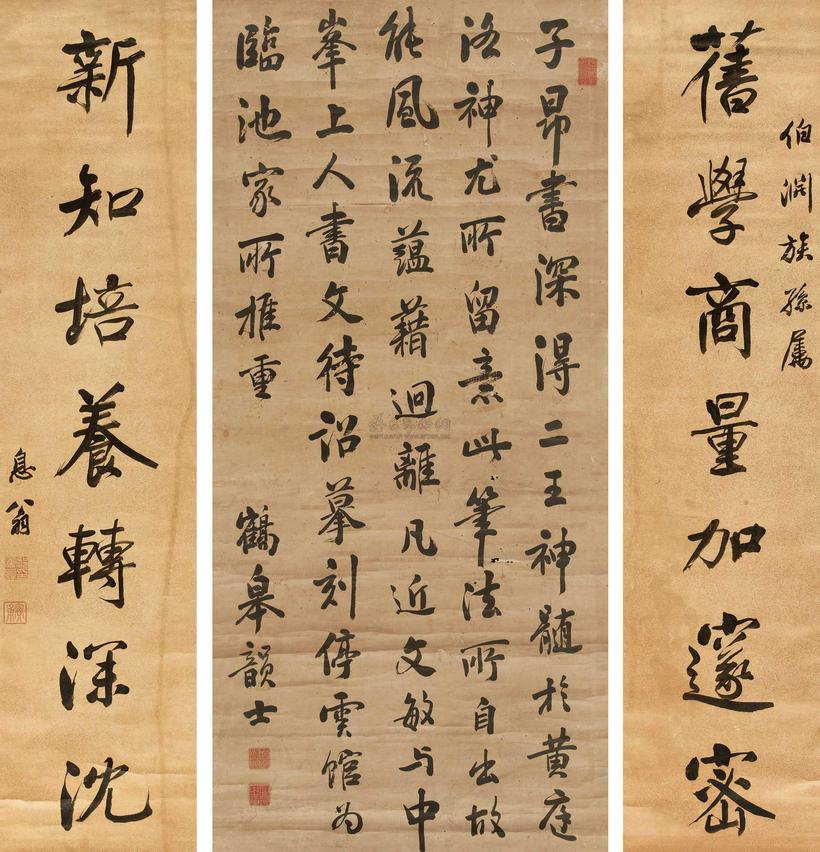 伯淵族孫属
舊學商量加邃密
子昂書深得二王神髓於黄庭
洛神尤所留意此筆法所自出故
能風流蘊藉迥離凡近文敏与中
峯上人書文待詔摹刻停雲館為
臨池家所推重 鶴皋韻士
新知培養轉深沈
息翁